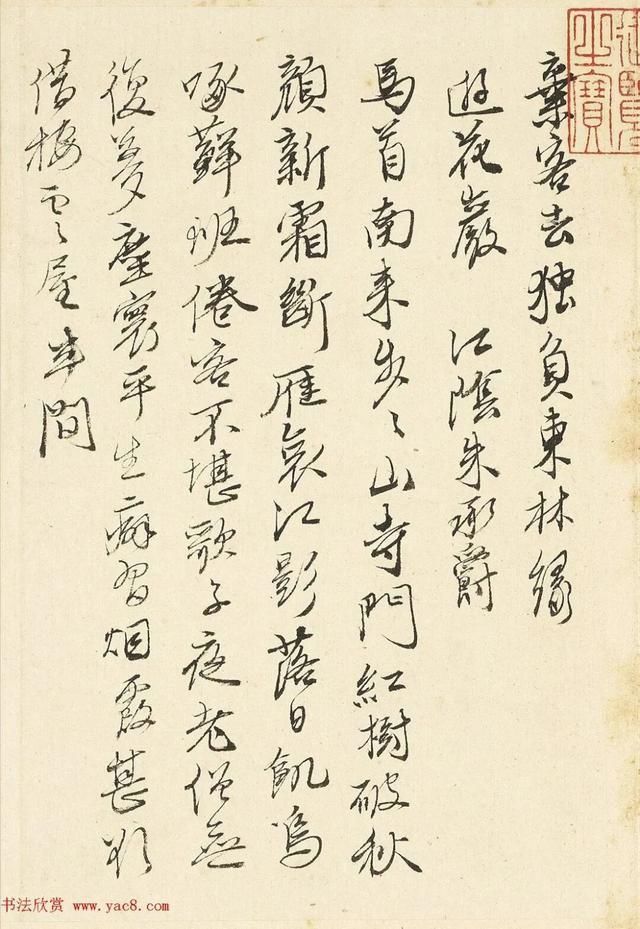 御覽之寶
棄客去独負東林緣
遊花巖 江陰朱承爵
馬首南来歩〻山寺門紅樹破秋
顔新霜斷雁哀江影落日飢烏
啄蘚班倦客不堪歌子夜老僧無
復夢塵寰平生癖習烟霞甚欲
借棲雲屋半間
书法欣赏 www.yac8.com